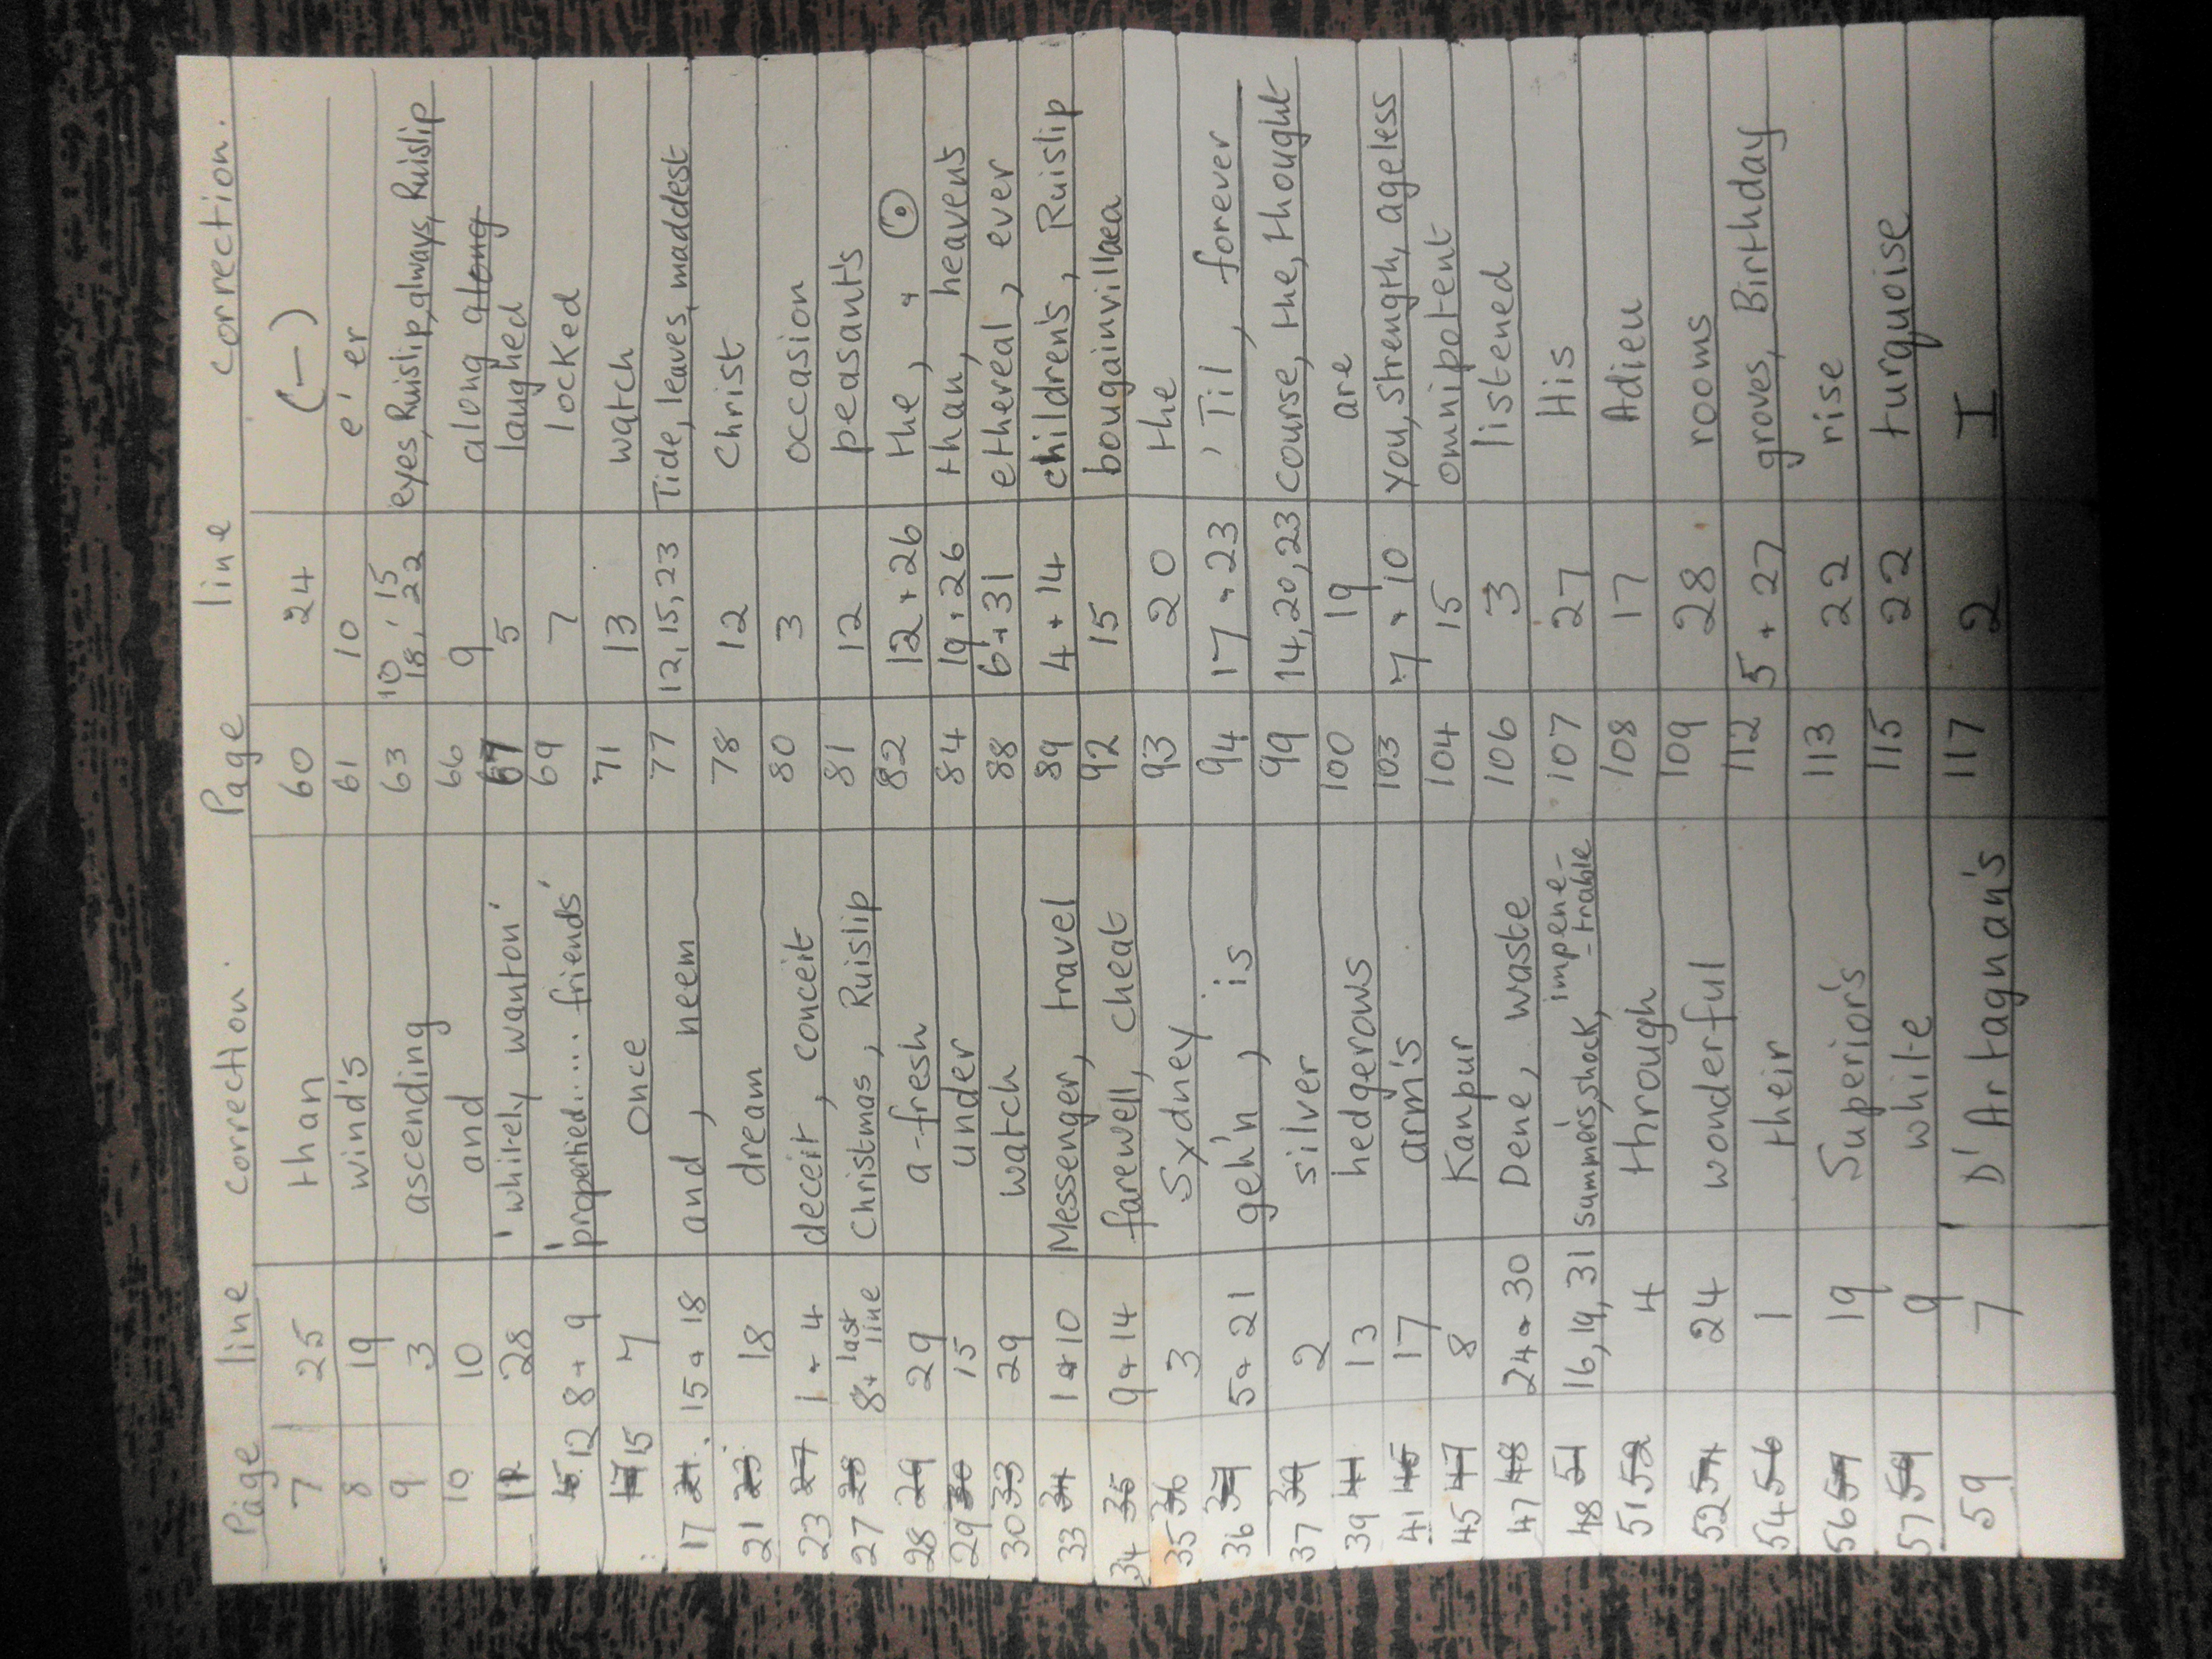 Page line correction. Page line correction.
7 25 than 60 24 (-)
8 19 wind's 61 10 e'er
9 3 ascending 63 10, 15 18, 22 eyes, Ruislip, always, Ruislip
10 10 and 66 9 along along
11 28 'whitely wanton' 67 5 laughed
12 8 + 9 'propertied..... friends' 69 7 locked
15 7 once 71 13 watch
17 21. 15 + 18 and, neem 77 12, 15, 23 Tide, leaves, maddest
21 23 18 dream 78 12 Christ
23 27 1 + 4 deceit, conceit 80 3 occasion
27 28 8 + last line Christmas, Ruislip 81 12 peasant's
28 29 29 a-fresh 82 12 + 26 the, + (.)
29 30 15 under 84 19 + 26 than, heaven's
30 33 29 watch 88 6 + 31 ethereal, ever
33 34 1 + 10 Messenger, travel 89 4 + 14 children's, Ruislip
34 35 9 + 14 farewell, cheat 92 15 bougainvillaea
35 36 3 Sydney 93 20 the
36 37 5 + 21 geh'n, is 94 17 + 23 'Til, forever
37 39 2 silver 99 14, 20, 23 course, the, thought
39 41 13 hedgerows 100 19 are
41 45 17 arm's 103 7 + 10 you, strength, ageless
45 47 8 Kanpur 104 15 omnipotent
47 48 24 + 30 Dene, waste 106 3 listened
48 51 16, 19, 31 summer's, shock, impene- -trable 107 27 His
51 52 4 through 108 17 Adieu
52 54 24 wonderful 109 28 rooms
54 56 1 their 112 5 + 27 groves, Birthday
56 57 19 Superior's 113 22 rise
57 59 9 white 115 22 turquoise
59 7 D'Artagnan's 117 2 I